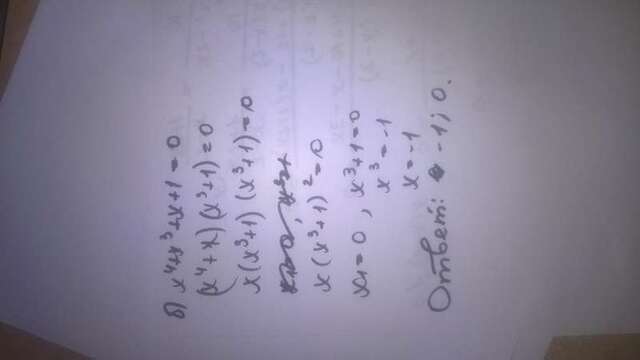 б) x⁴+x³+x+1=0
(x⁴+x)(x³+1)=0
x(x³+1)(x³+1)=0
x(x³+1)²=0
x₁=0, x³+1=0
x³=-1
x=-1
Ответ: -1; 0.